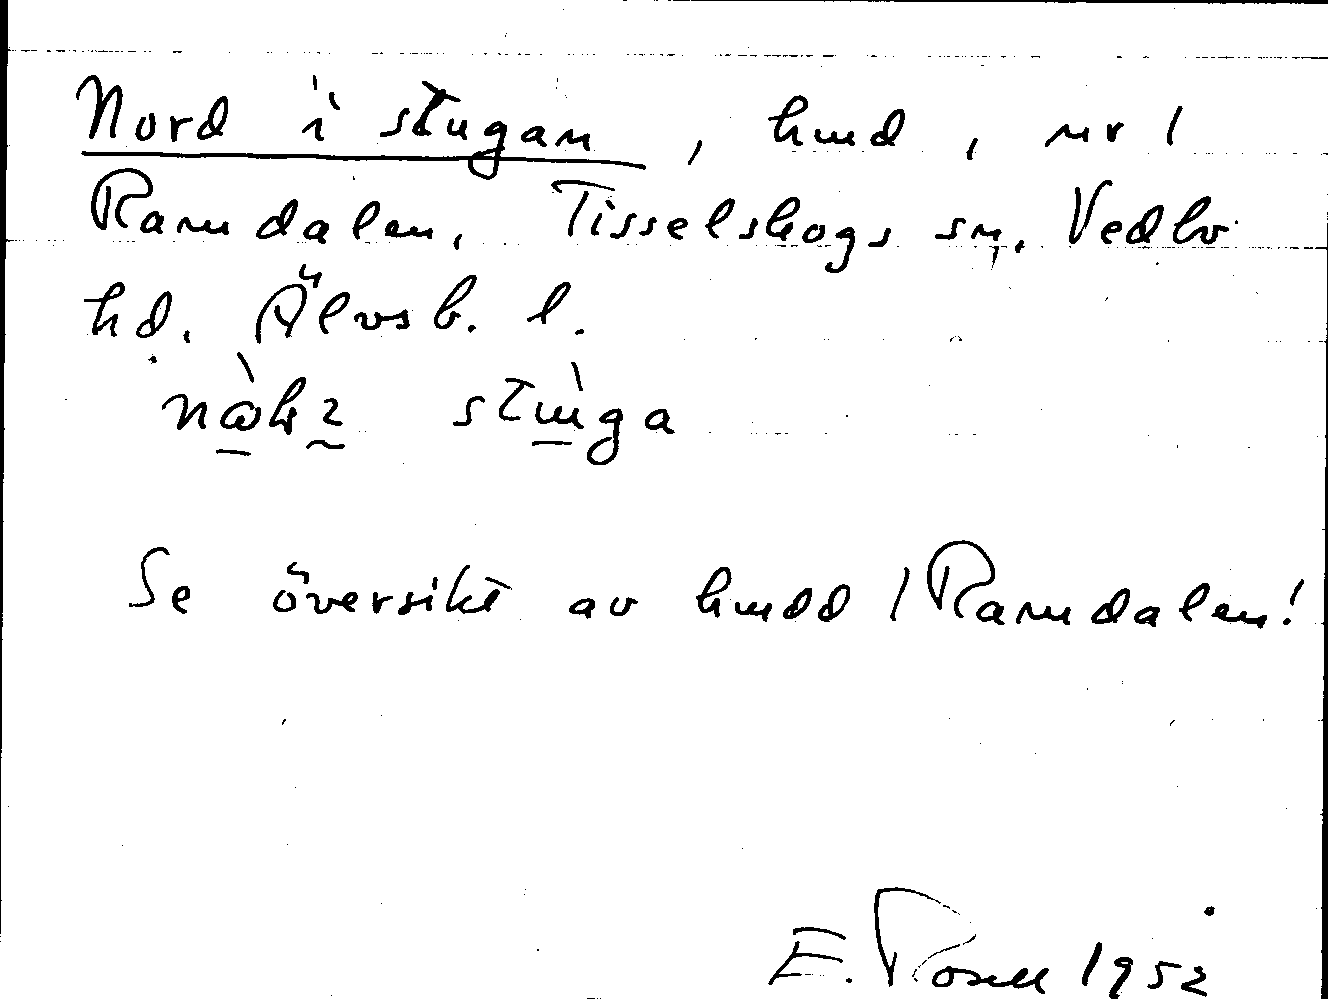 Nord i stugan, hmd, nr 1
Ramdalen, Tisselskogs sn, Vedbo
hd. Älvsb. l.
stuga
Se översikt av hmdd / Ramdalen!
E. Rosell 1952